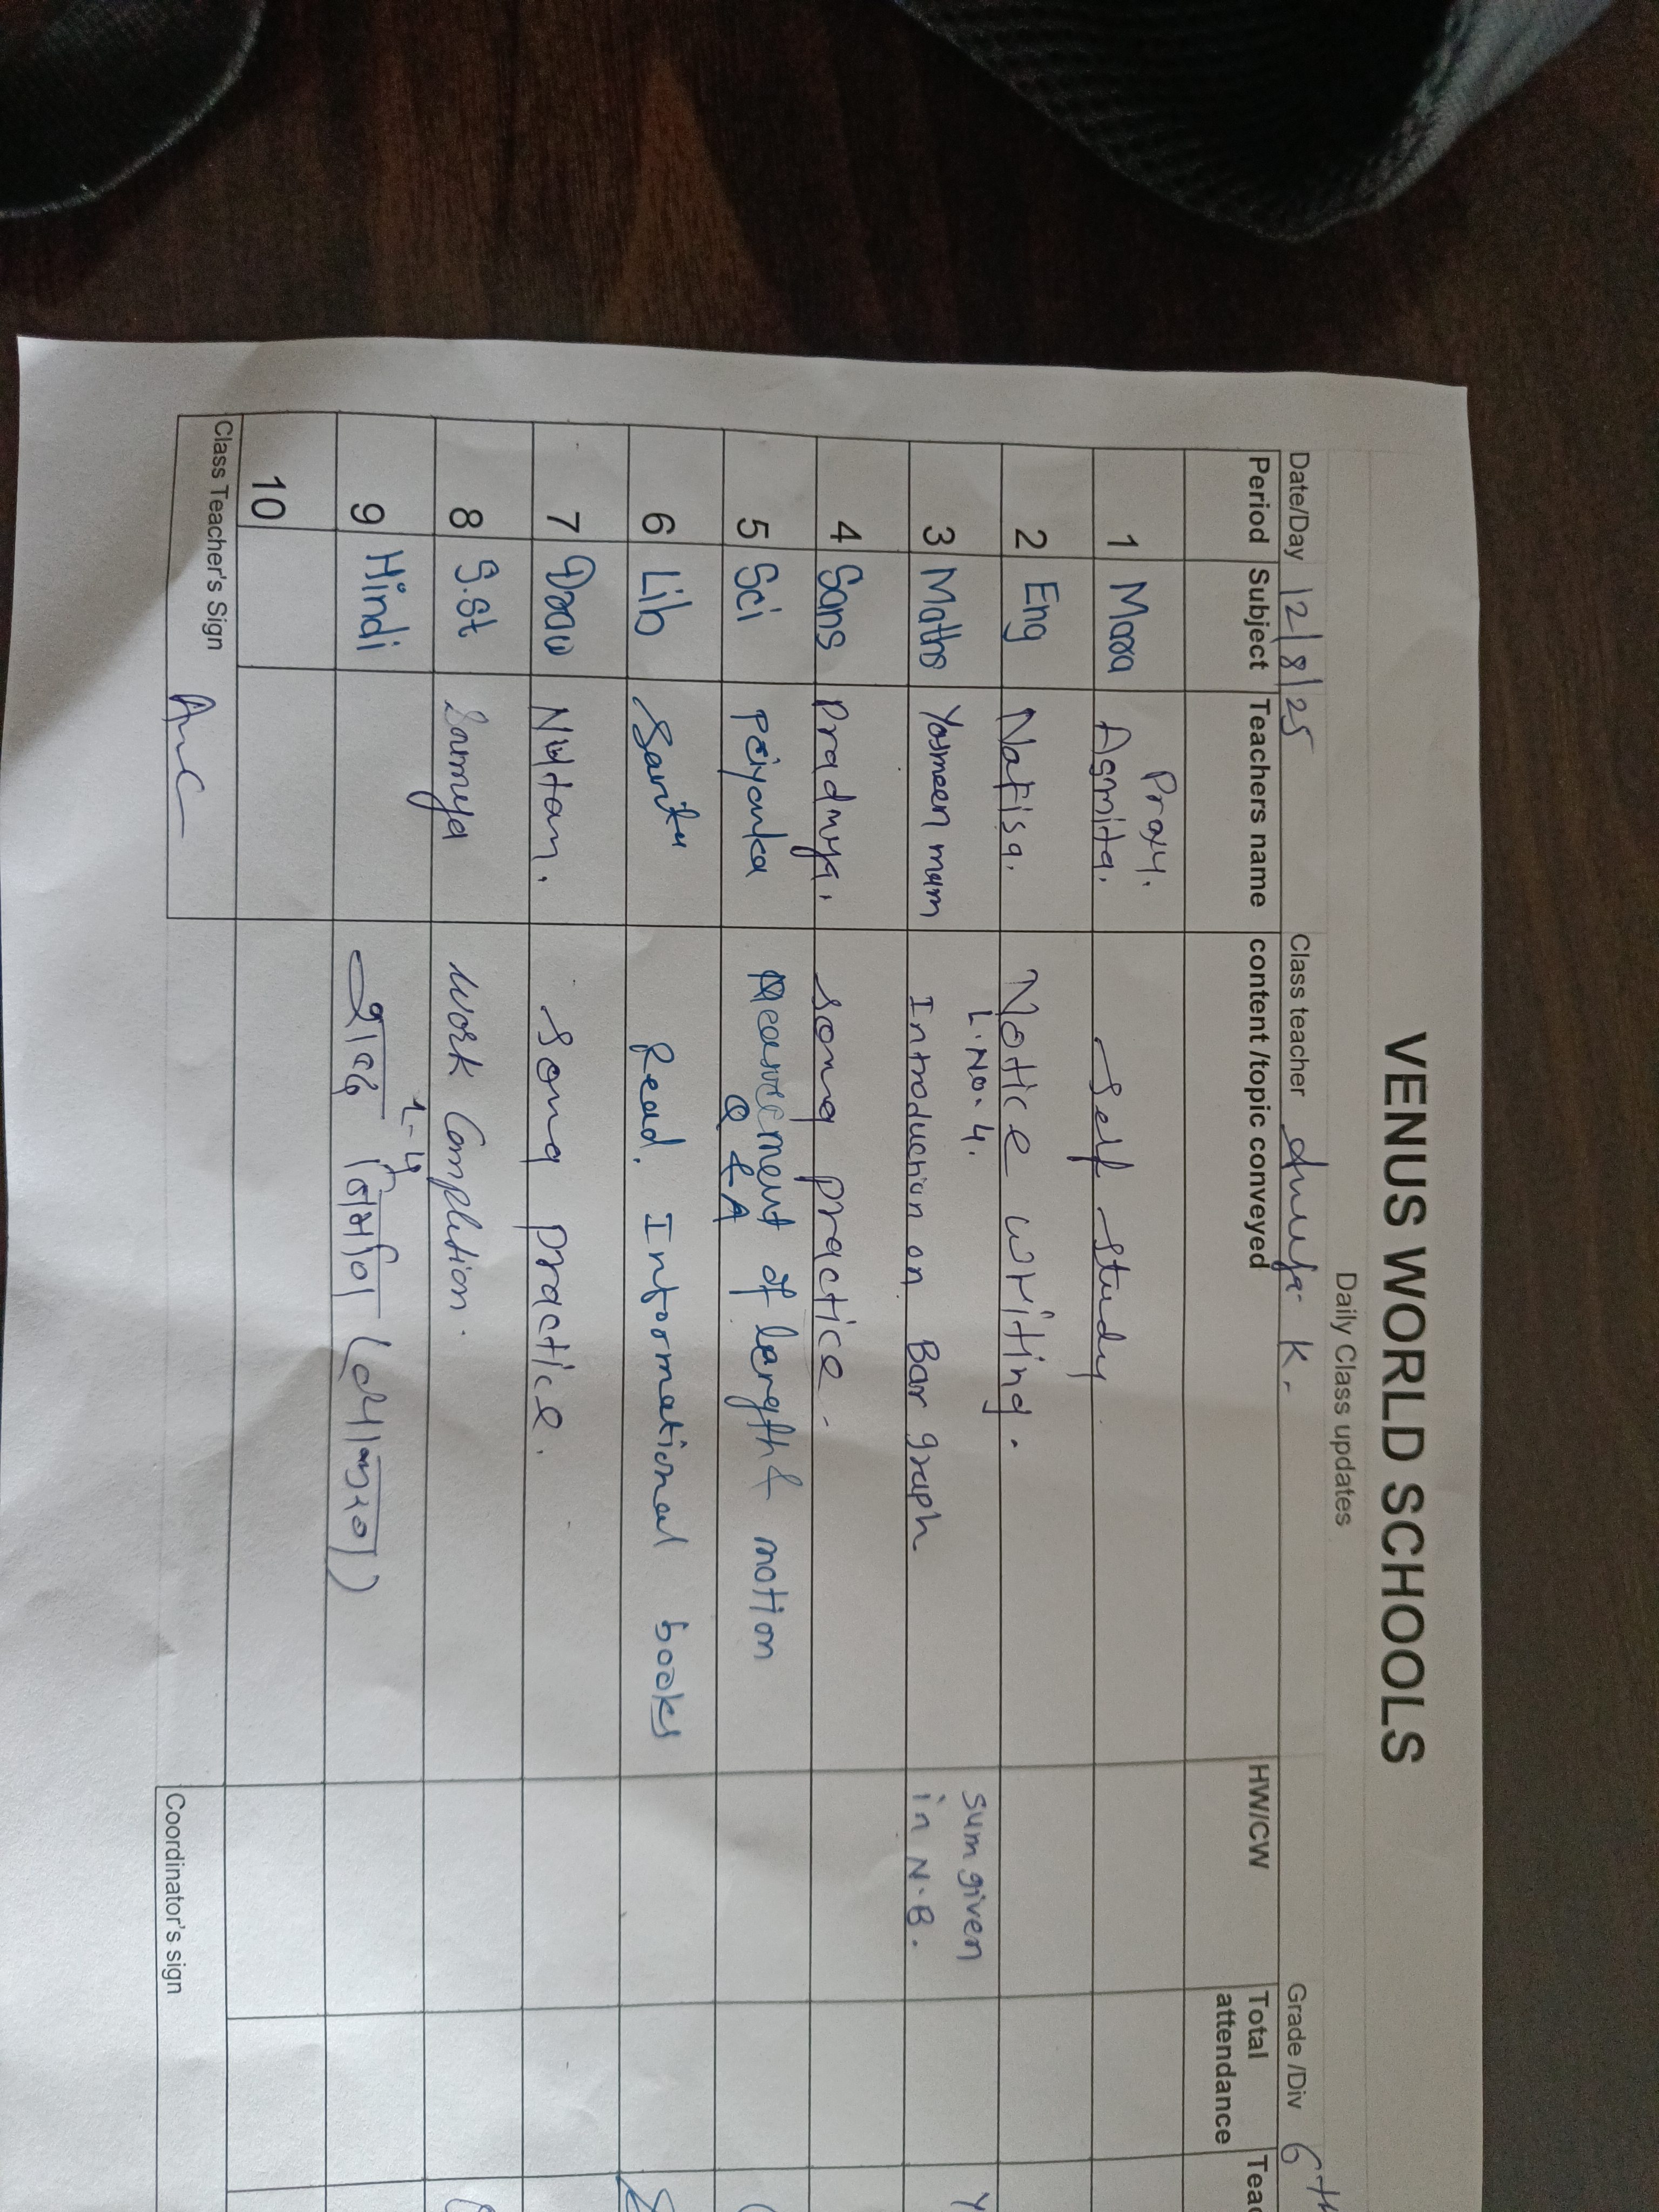 VENUS WORLD SCHOOLS
Daily Class updates
Date/Day 12/8/25 Class teacher Anuja K. Grade /Div 6th
Period Subject Teachers name content /topic conveyed HW/CW Total attendance Teac
1 Mara Proxy. Asmita. self study
2 Eng Nafisa. Notice writing.
3 Maths Yasmeen mam L.No.4. Introduction on Bar graph sum given in N.B.
4 Sans Pradnya. song practice.
5 Sci Priyanka Measurement of length & motion Q & A
6 Lib Sarita Read. Informational books
7 Draw Nutan. song practice.
8 S.St Saumya work Completion.
9 Hindi शब्द निर्माण (व्याकरण)
10
Class Teacher's Sign Coordinator's sign